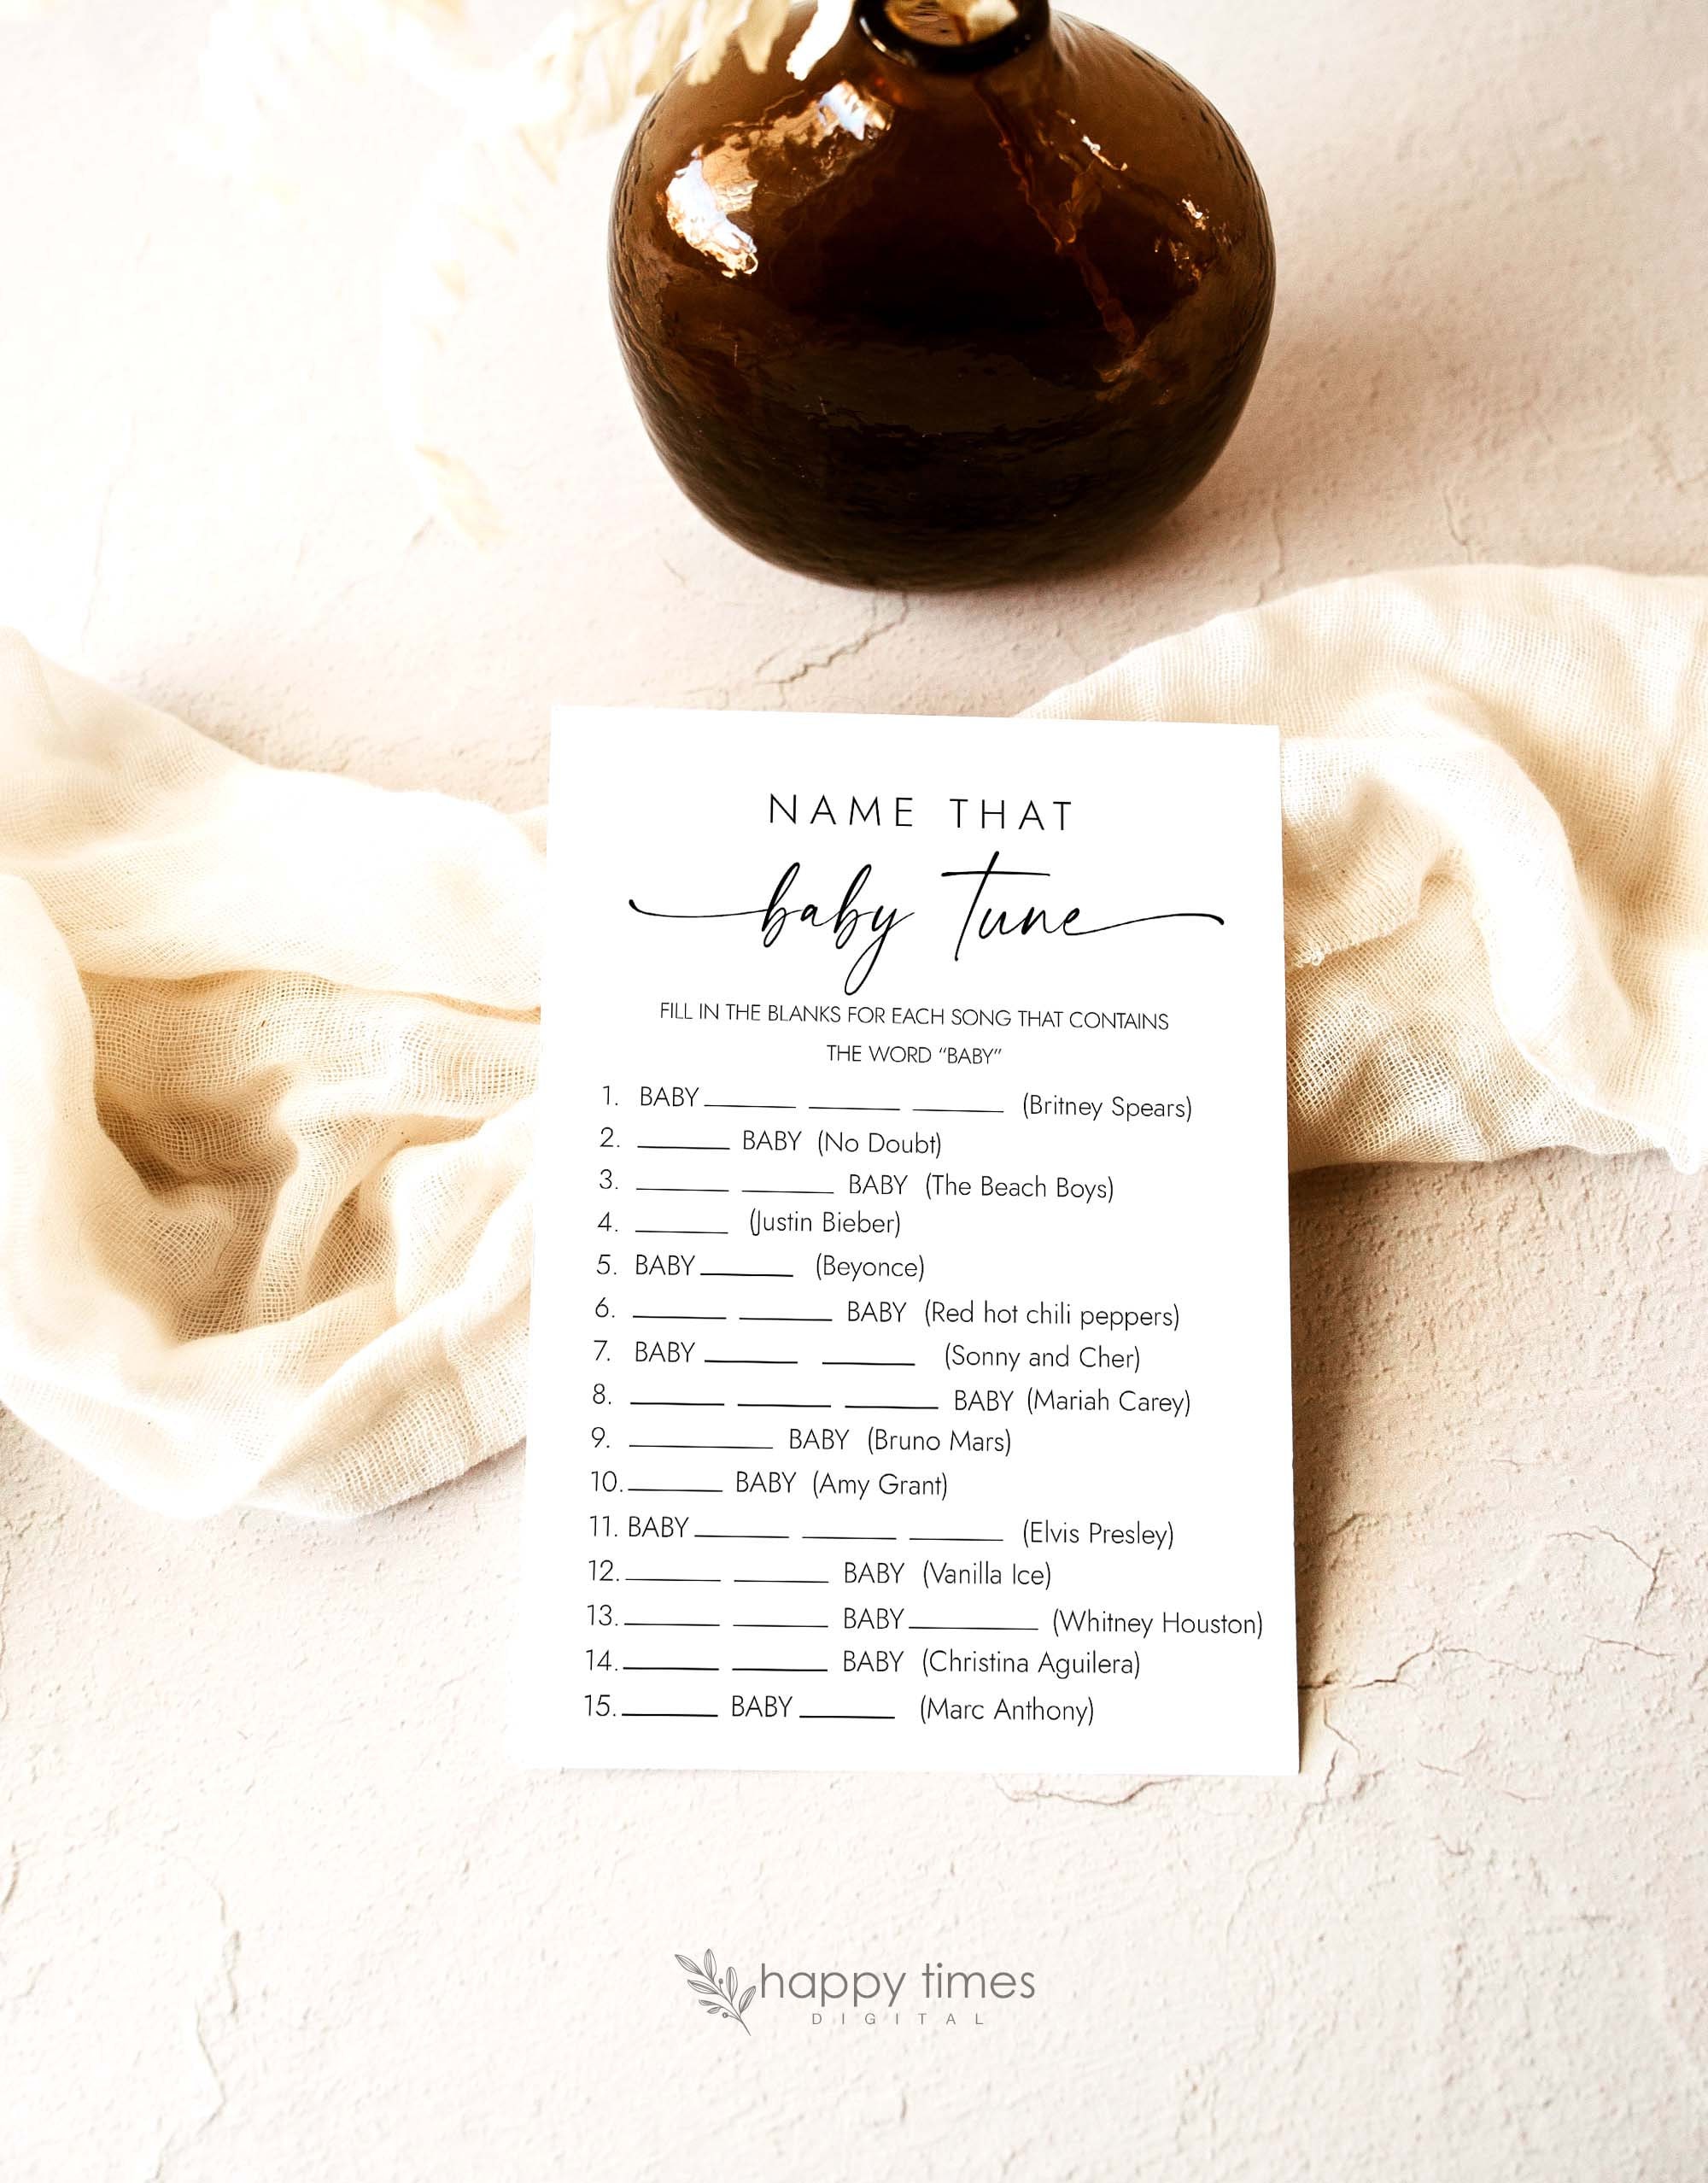 NAME THAT
baby tune
FILL IN THE BLANKS FOR EACH SONG THAT CONTAINS
THE WORD “BABY”
1. BABY ______ ______ ______ (Britney Spears)
2. ______ BABY (No Doubt)
3. ______ ______ BABY (The Beach Boys)
4. ______ (Justin Bieber)
5. BABY ______ (Beyonce)
6. ______ ______ BABY (Red hot chili peppers)
7. BABY ______ ______ (Sonny and Cher)
8. ______ ______ ______ BABY (Mariah Carey)
9. _________ BABY (Bruno Mars)
10. ______ BABY (Amy Grant)
11. BABY ______ ______ ______ (Elvis Presley)
12. ______ ______ BABY (Vanilla Ice)
13. ______ ______ BABY ________ (Whitney Houston)
14. ______ ______ BABY (Christina Aguilera)
15. ______ BABY ______ (Marc Anthony)
happy times
DIGITAL